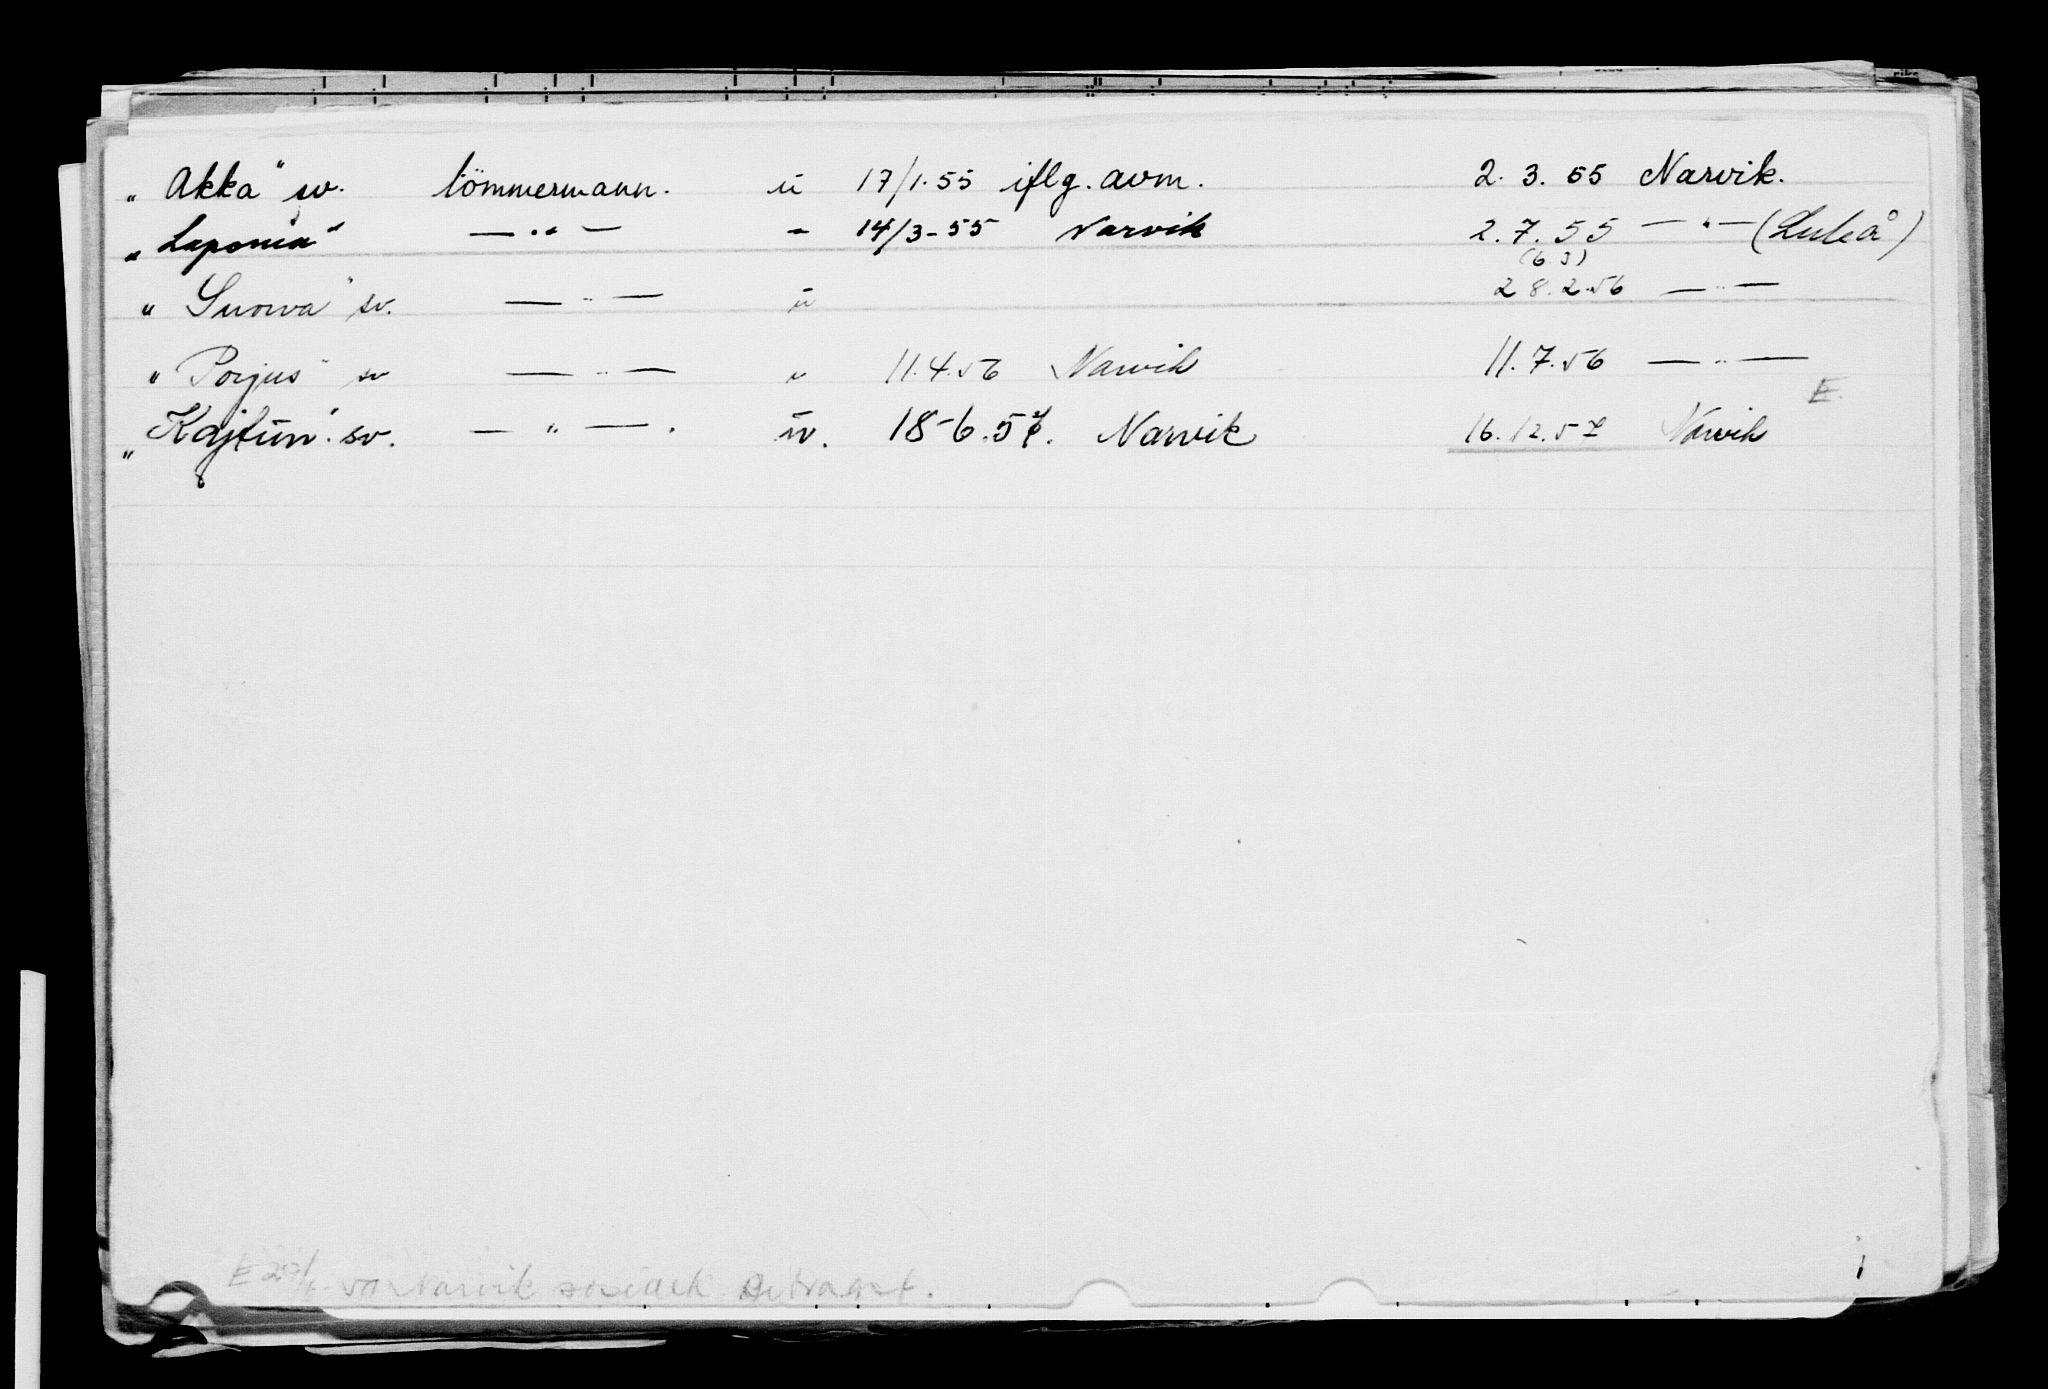 „Akka" sv. tömmermann. u 17/1.55 iflg. avm. 2. 3. 55 Narvik.
„Laponia" — „ — - 14/3-55 Narvik 2.7.55 — „ — (Luleå)
(6.3)
„Suorva" sv. — „ — u 28.2.56 — „ —
„Porjus" sv — „ — u 11.4.56 Narvik 11.7.56 — „ —
E.
„Kajtum". sv. — „ — . u. 18-6.57. Narvik 16.12.57 Narvik
E 20/ Narvik